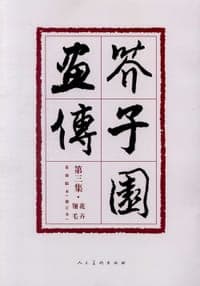 芥子園
畫傳
第三集·
花卉
翎毛
人民美術出版社